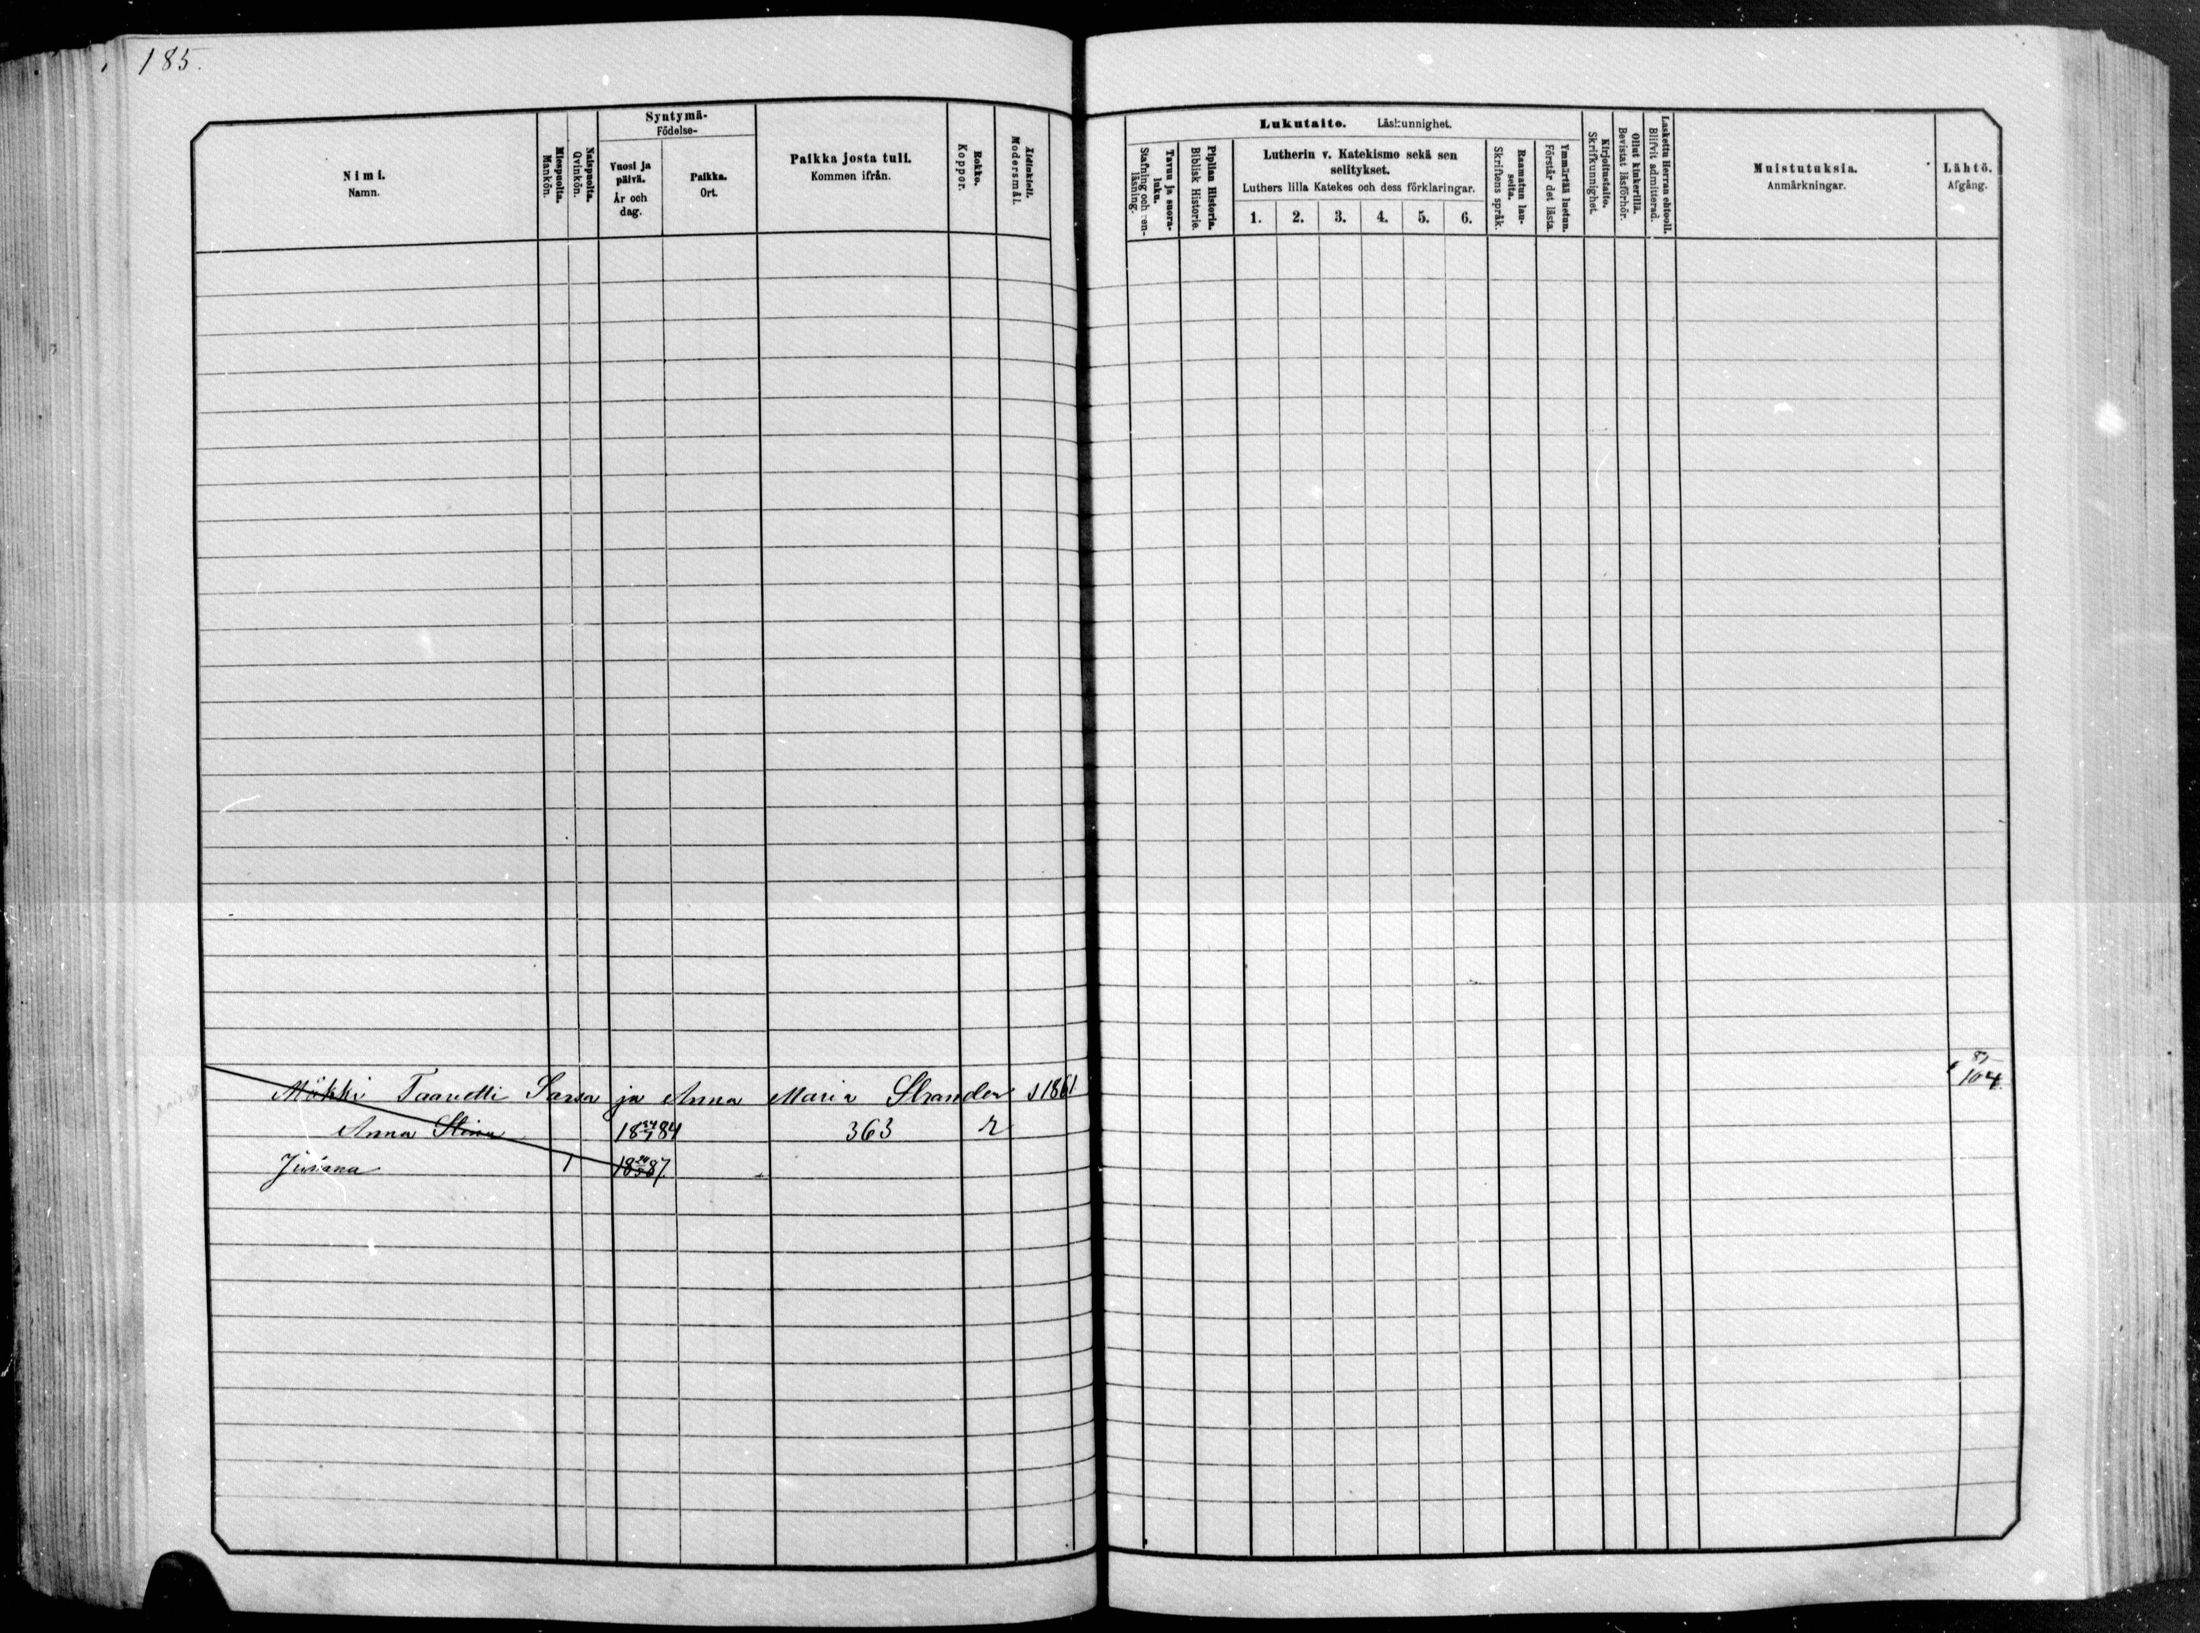 185.
Nimi.
Namn.
Miespuolta.
Mankön.
Naispuolta.
Qvinkön.
Syntymä-
Födelse-
Vuosi ja
päivä.
År och
dag.
Paikka.
Ort.
Paikka josta tuli.
Kommen ifrån.
Rokko.
Koppor.
Äidinkieli.
Modersmål.
Lukutaito. Läskunnighet.
Tavuu ja suora-
luku.
Stafning och ren-
läsning.
Piplian Historia.
Biblisk Historie.
Lutherin v. Katekismo sekä sen
selitykset.
Luthers lilla Katekes och dess förklaringar.
1. 2. 3. 4. 5. 6.
Raamatun lau-
seita.
Skriftens språk.
Ymmärtää luetun.
Förstår det lästa.
Kirjoitustaito.
Skrifkunnighet.
Ollut kinkerillä.
Bevistat läsförhör.
Laskettu Herran ehtooll.
Blifvit admitterad.
Muistutuksia.
Anmärkningar.
Lähtö.
Afgång.
Mökki Taavetti ja Anna Maria Strander s 1861 104
Anna Stina 18 84 363 r
1 18 87